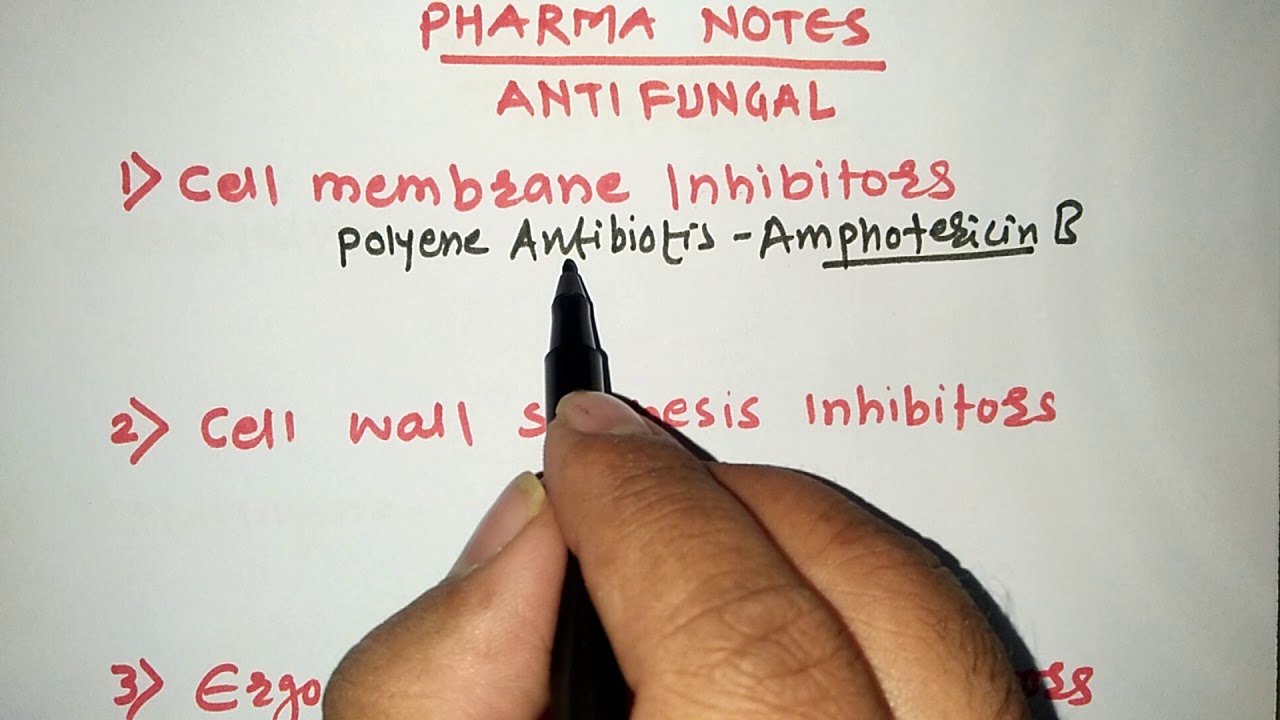 PHARMA NOTES
ANTIFUNGAL
1) Cell membrane Inhibitors
Polyene Antibiotis - Amphotericin B
2) Cell wall Inhibitors
3)